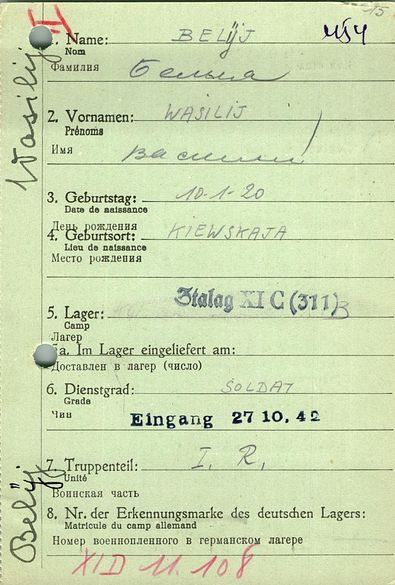 15
1. Name: BELIJ
Nom
Фамилия
M54
2. Vornamen: WASILIJ
Prénoms
Имя Василий
3. Geburtstag: 10-1-20
Date de naissance
День рождения
4. Geburtsort: KIEWSKAJA
Lieu de naissance
Место рождения
Stalag XI C (311) B
5. Lager:
Camp
Лагерь
5a. Im Lager eingeliefert am:
Доставлен в лагерь (число)
6. Dienstgrad: SOLDAT
Grade
Чин
Eingang 27 10. 42
7. Truppenteil: I. R.
Unité
Воинская часть
8. Nr. der Erkennungsmarke des deutschen Lagers:
Matricule du camp allemand
Номер военнопленного в германском лагере
XI D 11.108
Wasilij
Belij